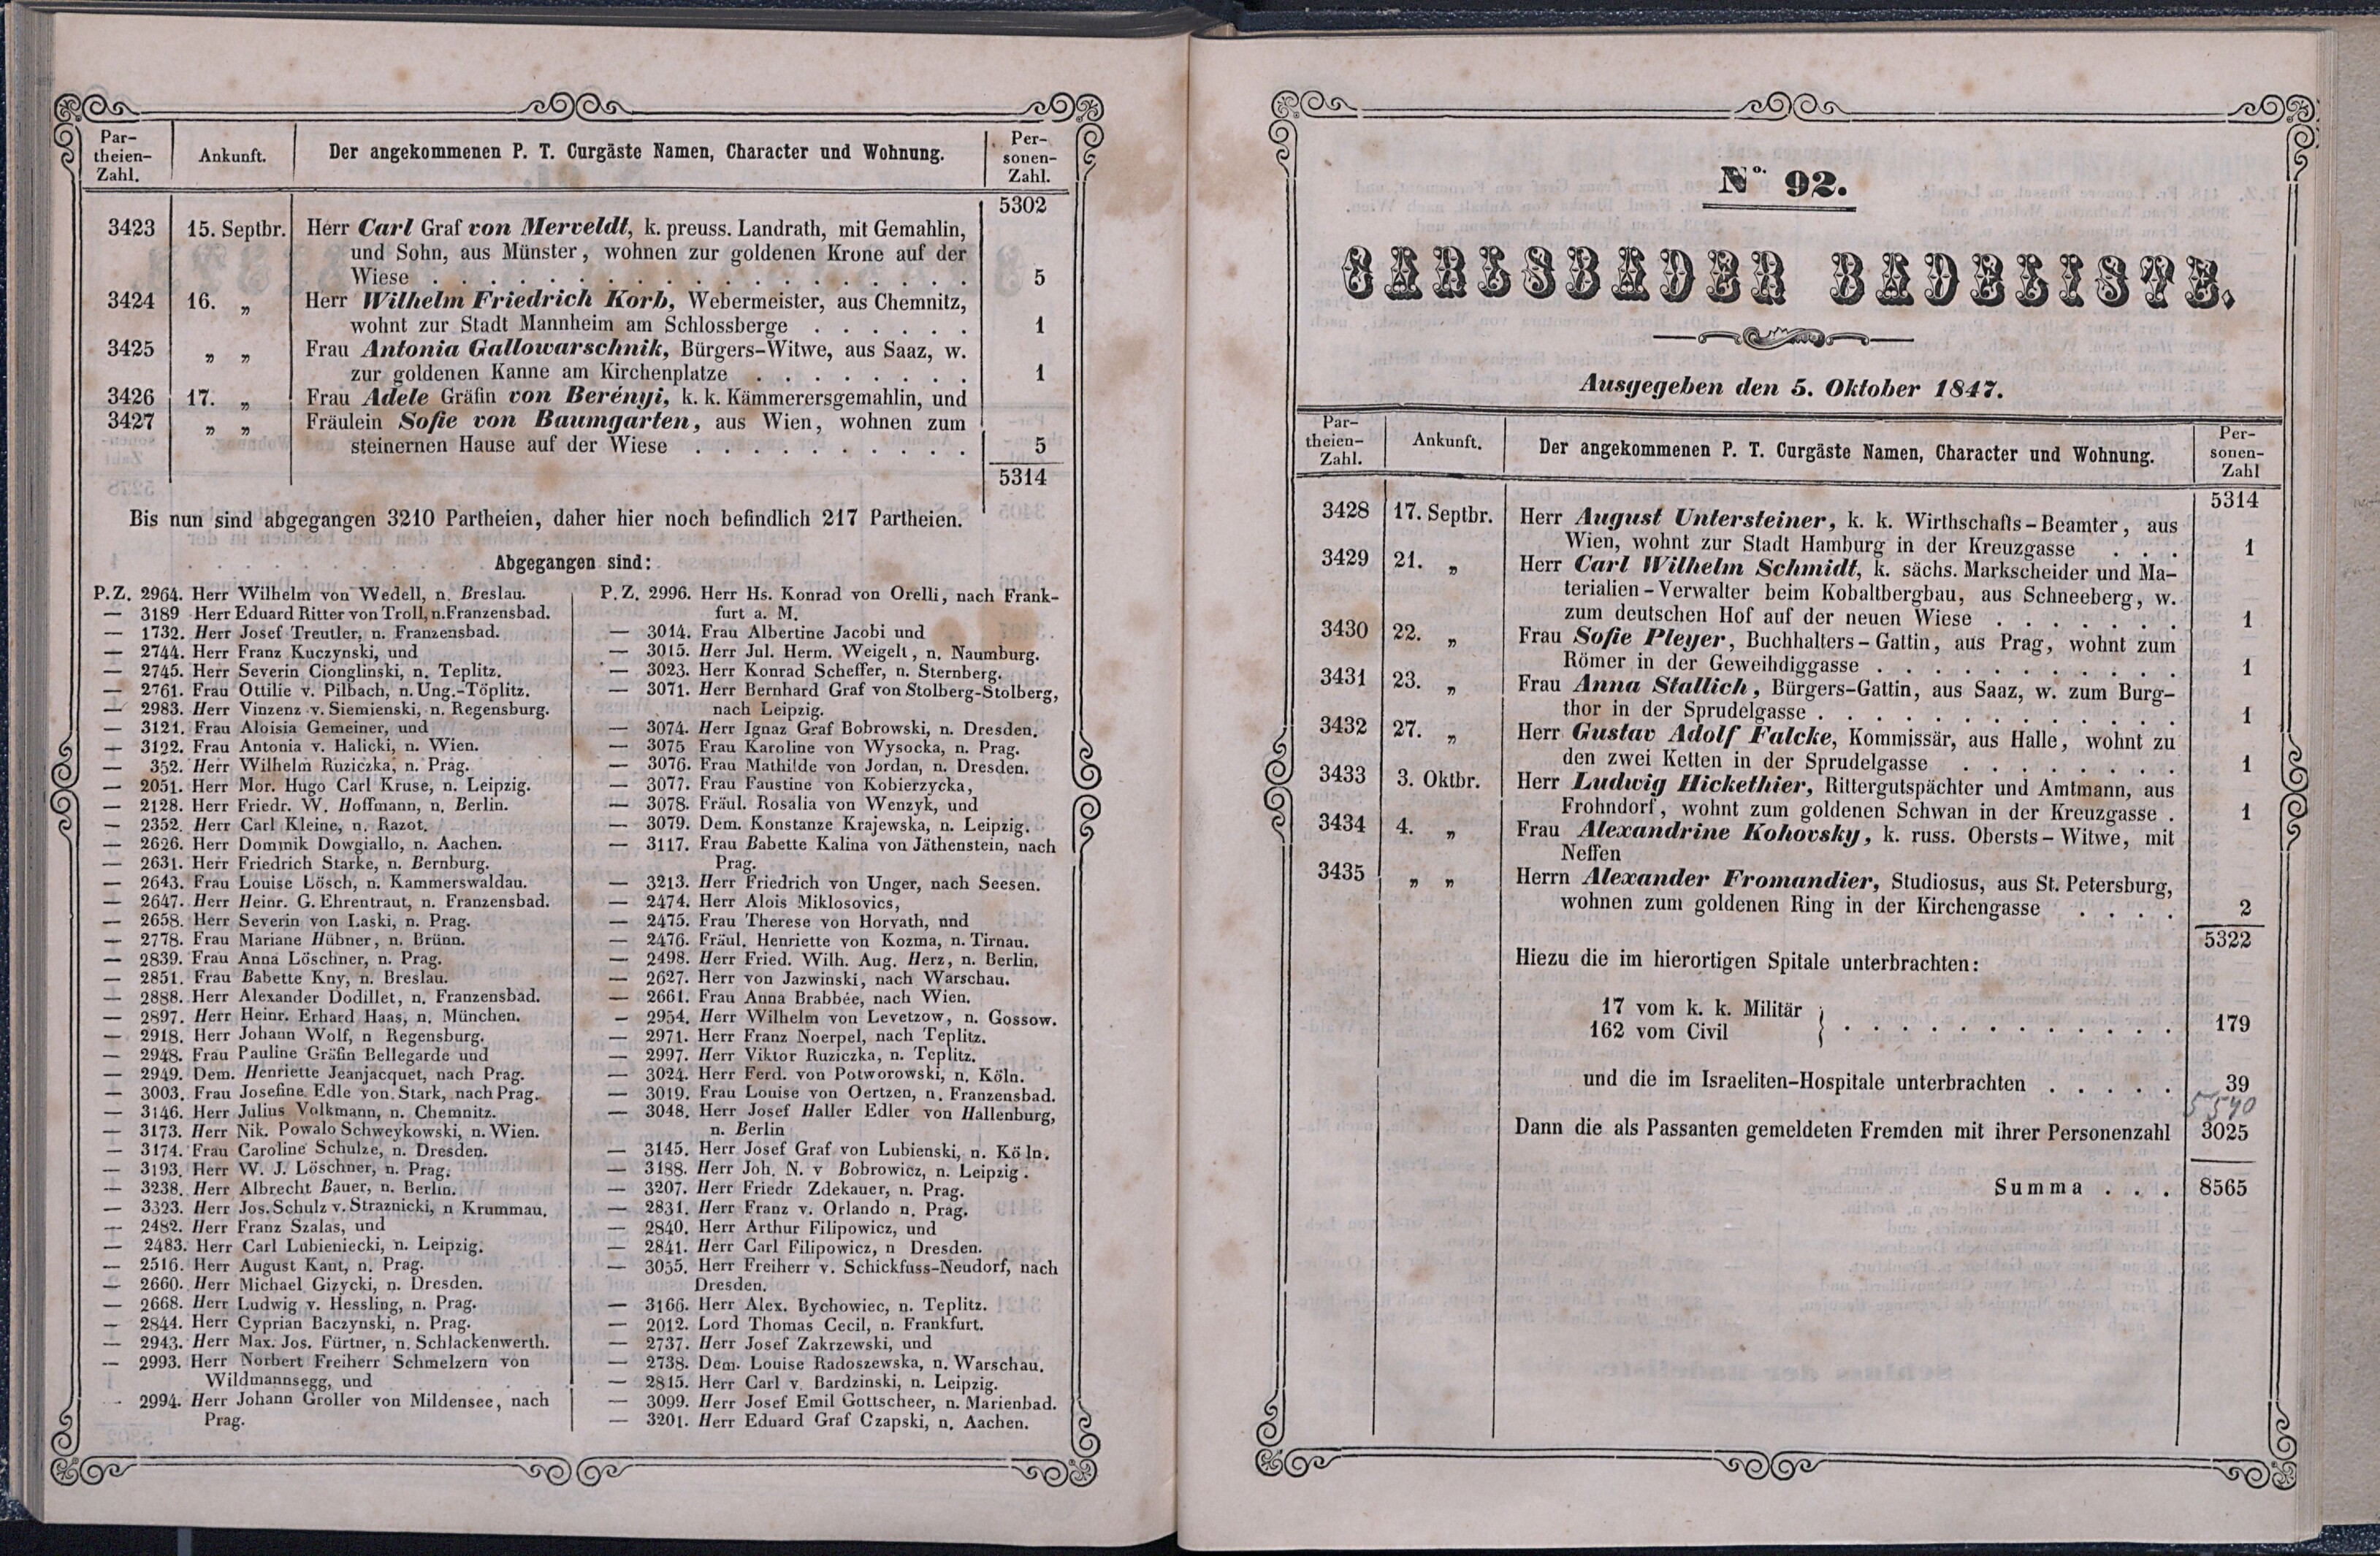 Par-
theien-
Zahl.
Ankunft.
Der angekommenen P. T. Curgäste Namen, Character und Wohnung.
Per-
sonen-
Zahl.
5302
3423 15. Septbr. Herr Carl Graf von Merveldt, k. preuss. Landrath, mit Gemahlin,
und Sohn, aus Münster, wohnen zur goldenen Krone auf der
Wiese . . . . . . . . . . . . . . . . . . . 5
3424 16. „ Herr Wilhelm Friedrich Korb, Webermeister, aus Chemnitz,
wohnt zur Stadt Mannheim am Schlossberge . . . . . . 1
3425 „ „ Frau Antonia Gallowarschnik, Bürgers-Witwe, aus Saaz, w.
zur goldenen Kanne am Kirchenplatze . . . . . . . . 1
3426 17. „ Frau Adele Gräfin von Berényi, k. k. Kämmerersgemahlin, und
3427 „ „ Fräulein Sofie von Baumgarten, aus Wien, wohnen zum
steinernen Hause auf der Wiese . . . . . . . . . . 5
5314
Bis nun sind abgegangen 3210 Partheien, daher hier noch befindlich 217 Partheien.
Abgegangen sind:
P.Z. 2964. Herr Wilhelm von Wedell, n. Breslau.
— 3189 Herr Eduard Ritter von Troll, n. Franzensbad.
— 1732. Herr Josef Treutler, n. Franzensbad.
— 2744. Herr Franz Kuczynski, und
— 2745. Herr Severin Cionglinski, n. Teplitz.
— 2761. Frau Ottilie v. Pilbach, n. Ung.-Töplitz.
— 2983. Herr Vinzenz v. Siemienski, n. Regensburg.
— 3121. Frau Aloisia Gemeiner, und
— 3122. Frau Antonia v. Halicki, n. Wien.
— 352. Herr Wilhelm Ruziczka, n. Prag.
— 2051. Herr Mor. Hugo Carl Kruse, n. Leipzig.
— 2128. Herr Friedr. W. Hoffmann, n. Berlin.
— 2352. Herr Carl Kleine, n. Razot.
— 2626. Herr Dominik Dowgiallo, n. Aachen.
— 2631. Herr Friedrich Starke, n. Bernburg.
— 2643. Frau Louise Lösch, n. Kammerswaldau.
— 2647. Herr Heinr. G. Ehrentraut, n. Franzensbad.
— 2658. Herr Severin von Laski, n. Prag.
— 2778. Frau Mariane Hübner, n. Brünn.
— 2839. Frau Anna Löschner, n. Prag.
— 2851. Frau Babette Kny, n. Breslau.
— 2888. Herr Alexander Dodillet, n. Franzensbad.
— 2897. Herr Heinr. Erhard Haas, n. München.
— 2918. Herr Johann Wolf, n Regensburg.
— 2948. Frau Pauline Gräfin Bellegarde und
— 2949. Dem. Henriette Jeanjacquet, nach Prag.
— 3003. Frau Josefine Edle von Stark, nach Prag.
— 3146. Herr Julius Volkmann, n. Chemnitz.
— 3173. Herr Nik. Powalo Schweykowski, n. Wien.
— 3174. Frau Caroline Schulze, n. Dresden.
— 3193. Herr W. J. Löschner, n. Prag.
— 3238. Herr Albrecht Bauer, n. Berlin.
— 3323. Herr Jos. Schulz v. Straznicki, n Krummau.
— 2482. Herr Franz Szalas, und
— 2483. Herr Carl Lubieniecki, n. Leipzig.
— 2516. Herr August Kant, n. Prag.
— 2660. Herr Michael Gizycki, n. Dresden.
— 2668. Herr Ludwig v. Hessling, n. Prag.
— 2844. Herr Cyprian Baczynski, n. Prag.
— 2943. Herr Max. Jos. Fürtner, n. Schlackenwerth.
— 2993. Herr Norbert Freiherr Schmelzern von
Wildmannsegg, und
— 2994. Herr Johann Groller von Mildensee, nach
Prag.
P.Z. 2996. Herr Hs. Konrad von Orelli, nach Frank-
furt a. M.
— 3014. Frau Albertine Jacobi und
— 3015. Herr Jul. Herm. Weigelt, n. Naumburg.
— 3023. Herr Konrad Scheffer, n. Sternberg.
— 3071. Herr Bernhard Graf von Stolberg-Stolberg,
nach Leipzig.
— 3074. Herr Ignaz Graf Bobrowski, n. Dresden.
— 3075 Frau Karoline von Wysocka, n. Prag.
— 3076. Frau Mathilde von Jordan, n. Dresden.
— 3077. Frau Faustine von Kobierzycka,
— 3078. Fräul. Rosalia von Wenzyk, und
— 3079. Dem. Konstanze Krajewska, n. Leipzig.
— 3117. Frau Babette Kalina von Jäthenstein, nach
Prag.
— 3213. Herr Friedrich von Unger, nach Seesen.
— 2474. Herr Alois Miklosovics,
— 2475. Frau Therese von Horvath, nnd
— 2476. Fräul. Henriette von Kozma, n. Tirnau.
— 2498. Herr Fried. Wilh. Aug. Herz, n. Berlin.
— 2627. Herr von Jazwinski, nach Warschau.
— 2661. Frau Anna Brabbée, nach Wien.
— 2954. Herr Wilhelm von Levetzow, n. Gossow.
— 2971. Herr Franz Noerpel, nach Teplitz.
— 2997. Herr Viktor Ruziczka, n. Teplitz.
— 3024. Herr Ferd. von Potworowski, n. Köln.
— 3019. Frau Louise von Oertzen, n. Franzensbad.
— 3048. Herr Josef Haller Edler von Hallenburg,
n. Berlin
— 3145. Herr Josef Graf von Lubienski, n. Köln.
— 3188. Herr Joh. N. v Bobrowicz, n. Leipzig.
— 3207. Herr Friedr Zdekauer, n. Prag.
— 2831. Herr Franz v. Orlando n. Prag.
— 2840. Herr Arthur Filipowicz, und
— 2841. Herr Carl Filipowicz, n Dresden.
— 3055. Herr Freiherr v. Schickfuss-Neudorf, nach
Dresden.
— 3166. Herr Alex. Bychowiec, n. Teplitz.
— 2012. Lord Thomas Cecil, n. Frankfurt.
— 2737. Herr Josef Zakrzewski, und
— 2738. Dem. Louise Radoszewska, n. Warschau.
— 2815. Herr Carl v. Bardzinski, n. Leipzig.
— 3099. Herr Josef Emil Gottscheer, n. Marienbad.
— 3201. Herr Eduard Graf Czapski, n. Aachen.
No. 92.
CARLSBADER BADELISTE.
Ausgegeben den 5. Oktober 1847.
Par-
theien-
Zahl.
Ankunft.
Der angekommenen P. T. Curgäste Namen, Character und Wohnung.
Per-
sonen-
Zahl
5314
3428 17. Septbr. Herr August Untersteiner, k. k. Wirthschafts-Beamter, aus
Wien, wohnt zur Stadt Hamburg in der Kreuzgasse . . . 1
3429 21. „ Herr Carl Wilhelm Schmidt, k. sächs. Markscheider und Ma-
terialien-Verwalter beim Kobaltbergbau, aus Schneeberg, w.
zum deutschen Hof auf der neuen Wiese . . . . . . . 1
3430 22. „ Frau Sofie Pleyer, Buchhalters-Gattin, aus Prag, wohnt zum
Römer in der Geweihdiggasse . . . . . . . . . . . 1
3431 23. „ Frau Anna Stallich, Bürgers-Gattin, aus Saaz, w. zum Burg-
thor in der Sprudelgasse . . . . . . . . . . . . . 1
3432 27. „ Herr Gustav Adolf Falcke, Kommissär, aus Halle, wohnt zu
den zwei Ketten in der Sprudelgasse . . . . . . . . 1
3433 3. Oktbr. Herr Ludwig Hickethier, Rittergutspächter und Amtmann, aus
Frohndorf, wohnt zum goldenen Schwan in der Kreuzgasse . 1
3434 4. „ Frau Alexandrine Kohovsky, k. russ. Obersts-Witwe, mit
Neffen
3435 „ „ Herrn Alexander Fromandier, Studiosus, aus St. Petersburg,
wohnen zum goldenen Ring in der Kirchengasse . . . . 2
5322
Hiezu die im hierortigen Spitale unterbrachten:
17 vom k. k. Militär
162 vom Civil } . . . . . . . . . . . . 179
und die im Israeliten-Hospitale unterbrachten . . . . . 39
5540
Dann die als Passanten gemeldeten Fremden mit ihrer Personenzahl 3025
Summa . . . 8565